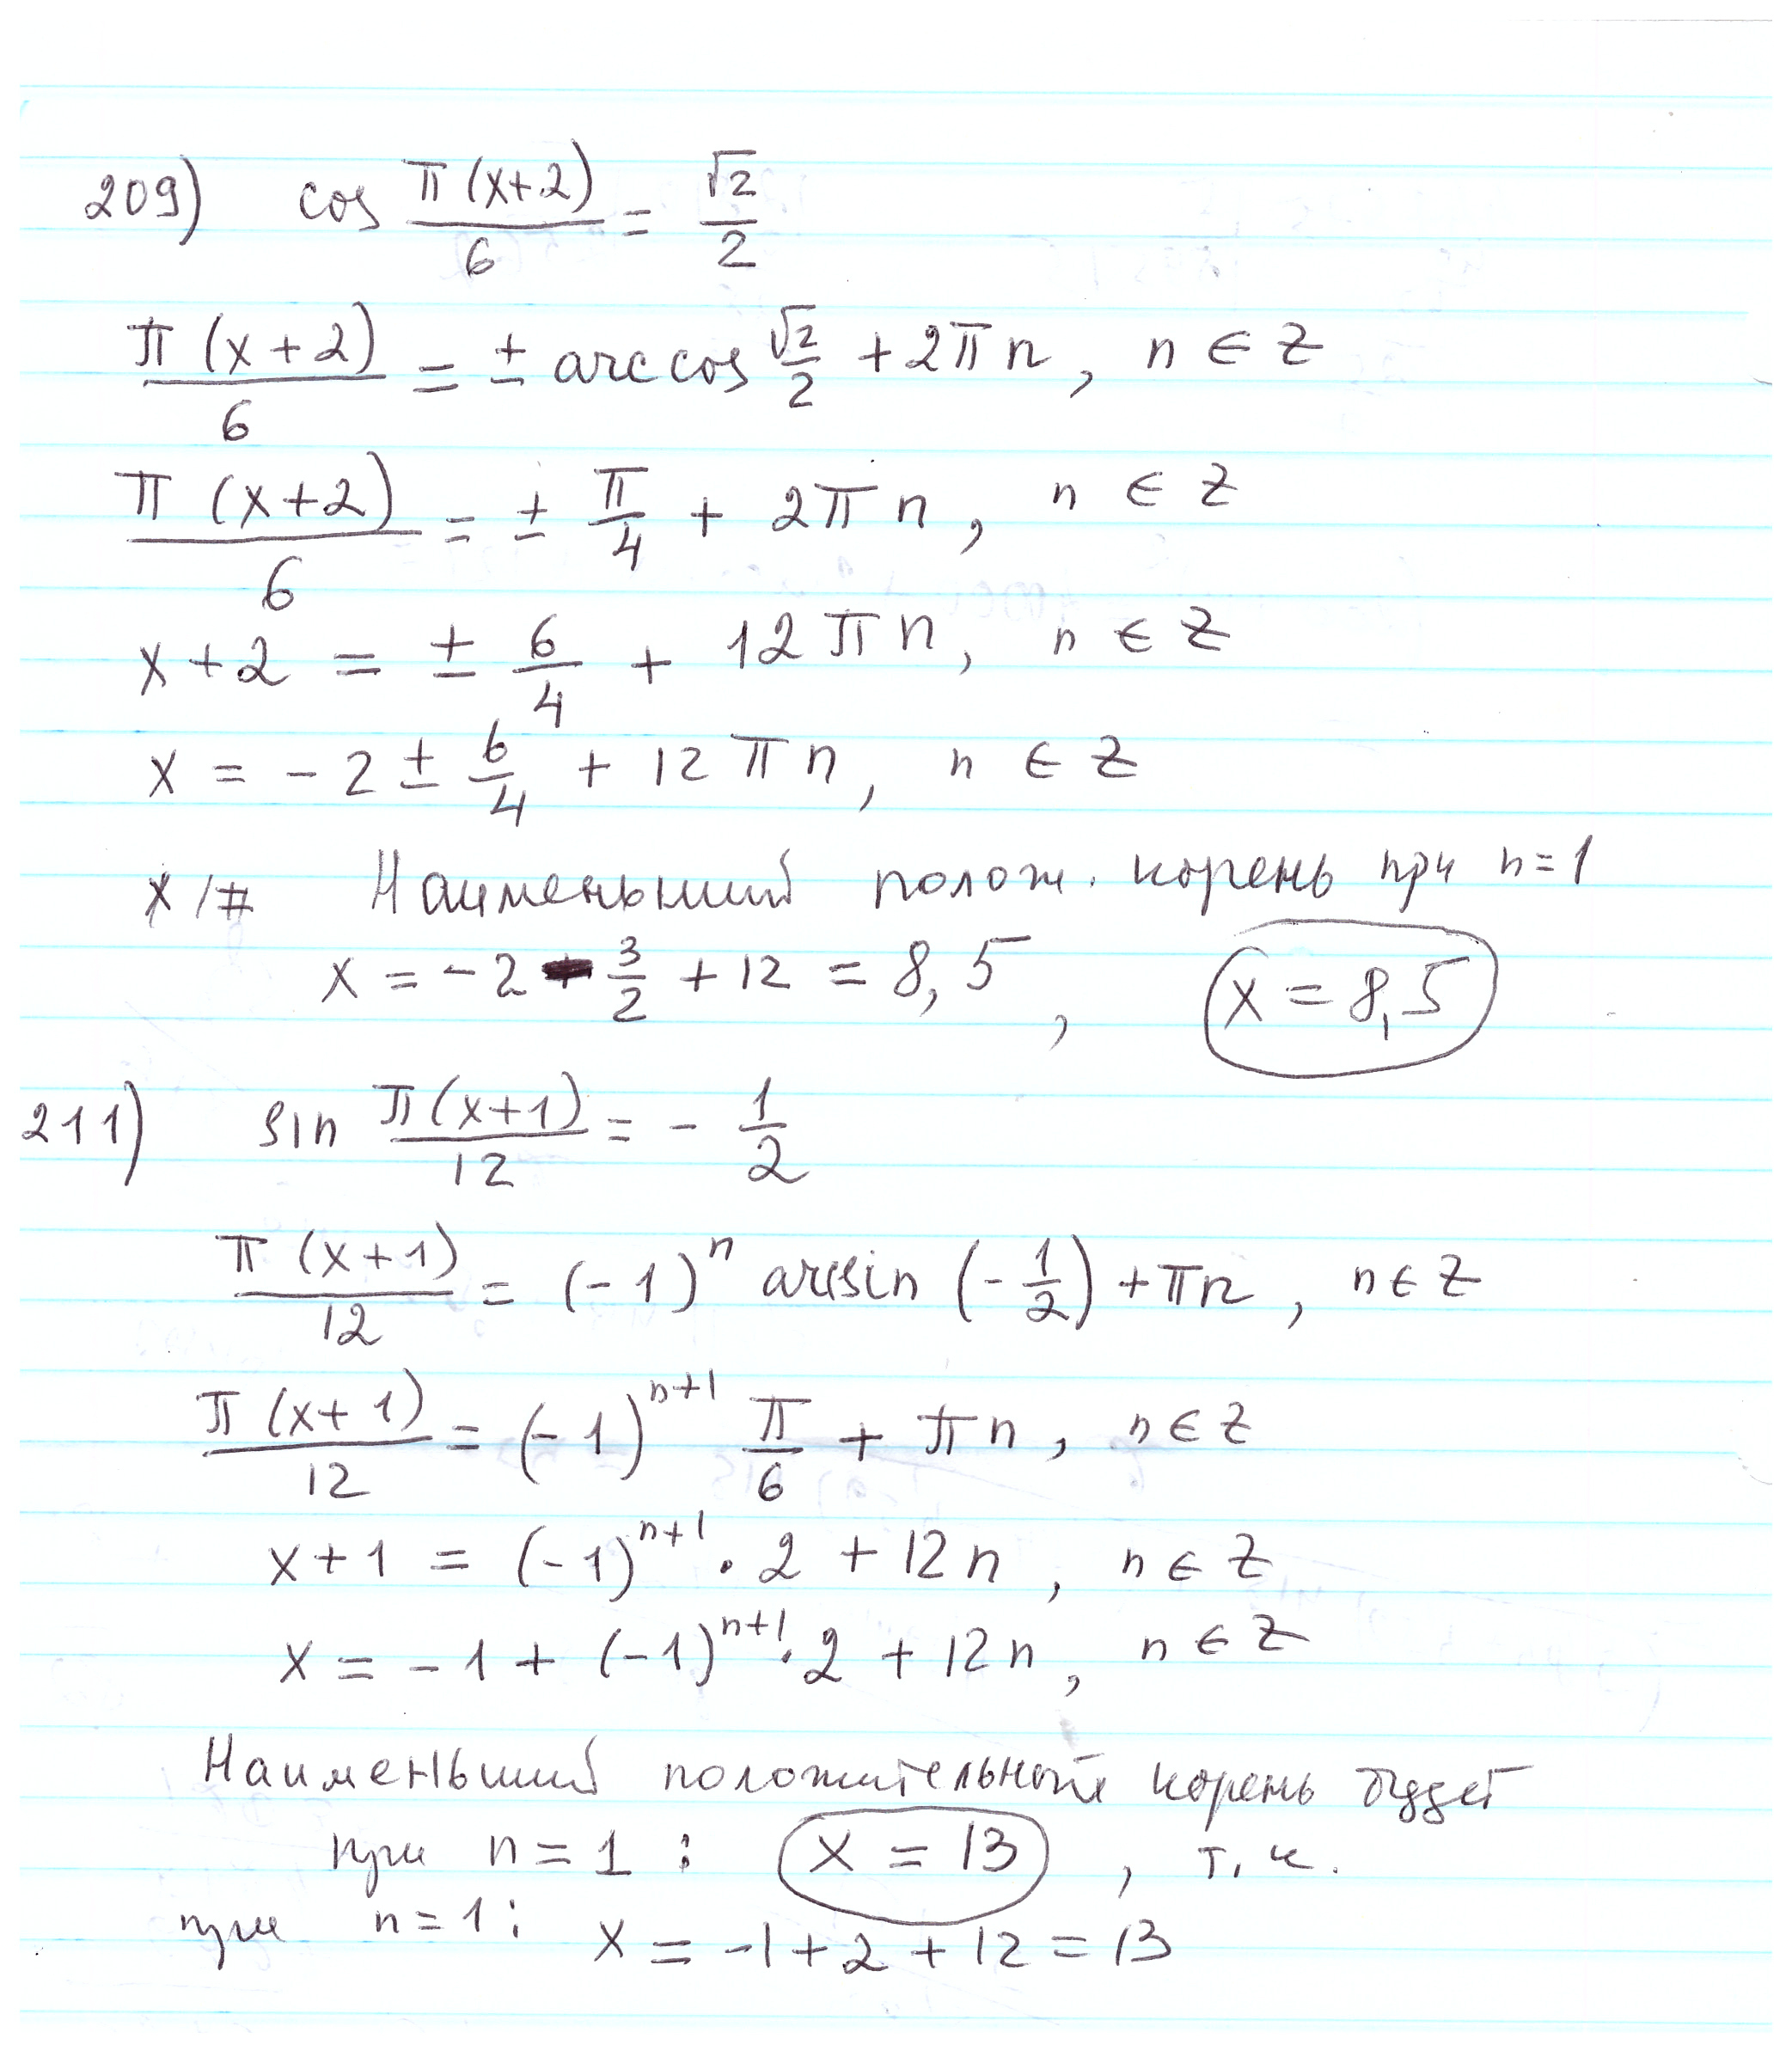 209) cos π(x+2)/6 = √2/2
π(x+2)/6 = ± arccos √2/2 + 2πn, n ∈ Z
π(x+2)/6 = ± π/4 + 2πn, n ∈ Z
x+2 = ± 6/4 + 12πn, n ∈ Z
x = -2 ± 6/4 + 12πn, n ∈ Z
Наименьший полож. корень при n=1
x = -2 - 3/2 + 12 = 8,5, x = 8,5
211) sin π(x+1)/12 = - 1/2
π(x+1)/12 = (-1)^n arcsin (-1/2) + πn, n ∈ Z
π(x+1)/12 = (-1)^(n+1) π/6 + πn, n ∈ Z
x+1 = (-1)^(n+1) · 2 + 12n, n ∈ Z
x = -1 + (-1)^(n+1) · 2 + 12n, n ∈ Z
Наименьший положительный корень будет
при n=1 : x = 13, т.к.
при n=1: x = -1+2+12=13